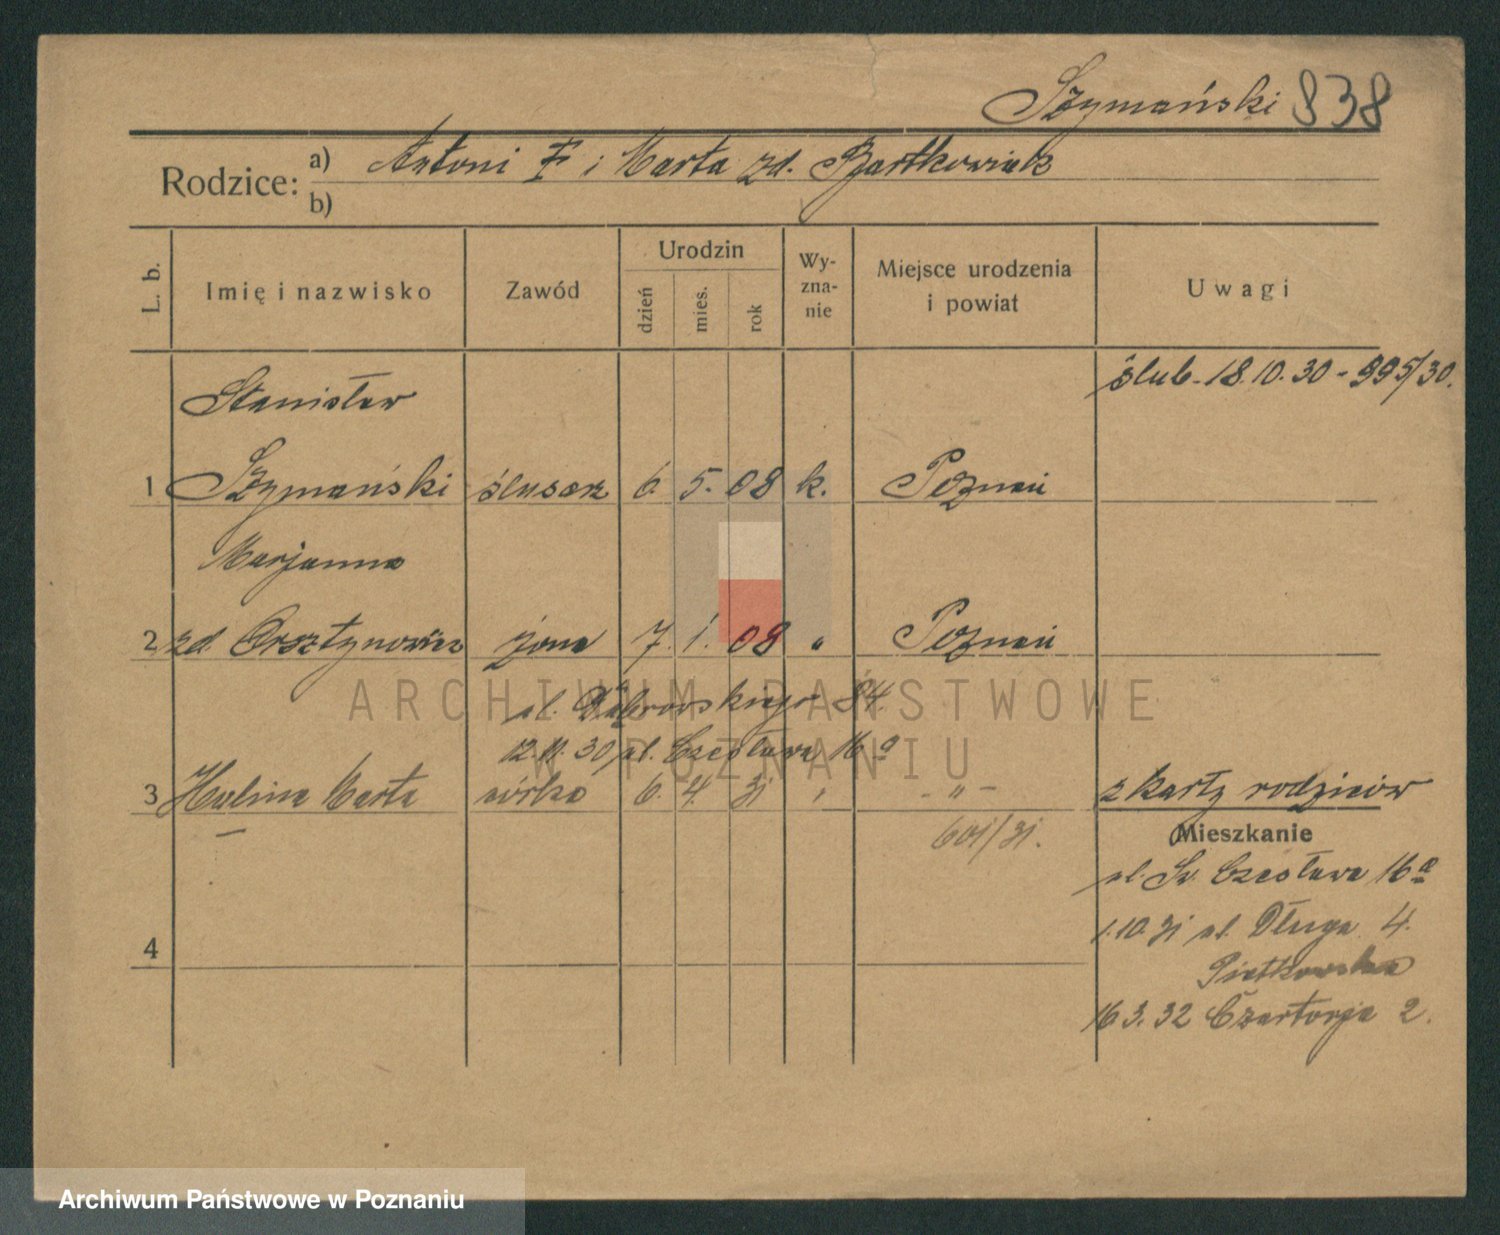 Szymański 838
Rodzice: a) Antoni F i Marta zd. Bartkowiak
b)
L. b.
Imię i nazwisko
Zawód
Urodzin
dzień
mies.
rok
Wy-
zna-
nie
Miejsce urodzenia
i powiat
Uwagi
Stanisław
ślub - 18.10.30 - 995/30.
1 Szymański ślusarz 6. 5. 08 k. Poznań
Marjanna
2 zd. Orsztynowicz żona 7. 1. 08 " Poznań
ul. Dąbrowskiego 84.
12.11.30 ul. Czesława 16a
3 Halina Marta córka 6. 4. 31 " - " - z karty rodziców
601/31.
Mieszkanie
ul. Św. Czesława 16a
1.10.31 ul. Długa 4.
4
Piątkowska
16.3.32 Czartorja 2.
ARCHIWUM PAŃSTWOWE
W POZNANIU
Archiwum Państwowe w Poznaniu